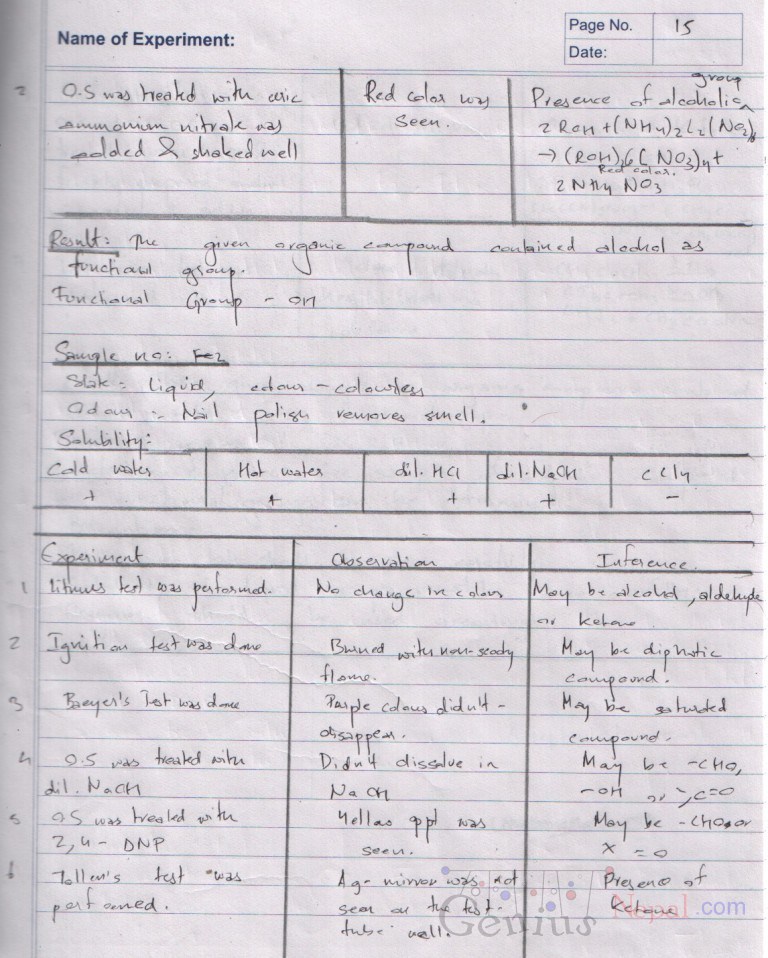 Name of Experiment:
Page No. 15
Date:
2 O.S was treated with ceric
ammonium nitrate was
added & shaked well
Red color was
seen.
group
Presence of alcoholic
2 ROH + (NH4)2 Ce(NO3)6
→ (ROH)2Ce(NO3)4 +
Red color.
2 NH4 NO3
Result: The given organic compound contained alcohol as
functional group.
Functional Group - OH
Sample no: Fe2
State: Liquid, colour - colourless
Odour :- Nail polish removes smell.
Solubility:
Cold water Hot water dil. HCl dil. NaOH CCl4
+ + + + -
Experiment Observation Inference.
1 litmus test was performed. No change in colour May be alcohol, aldehyde
or ketone.
2 Ignition test was done Burned with non-sooty
flame.
May be aliphatic
compound.
3 Baeyer's Test was done Purple colour didn't -
disappear.
May be saturated
compound.
4 O.S was treated with
dil. NaOH
Didn't dissolve in
NaOH
May be -CHO,
-OH or >C=O
5 O.S was treated with
2,4 - DNP
Yellow ppt was
seen.
May be -CHO or
=O
6 Tollen's test was
performed.
Ag- mirror was not
seen on the test-
tube wall.
Presence of
ketone
Genius Nepal.com